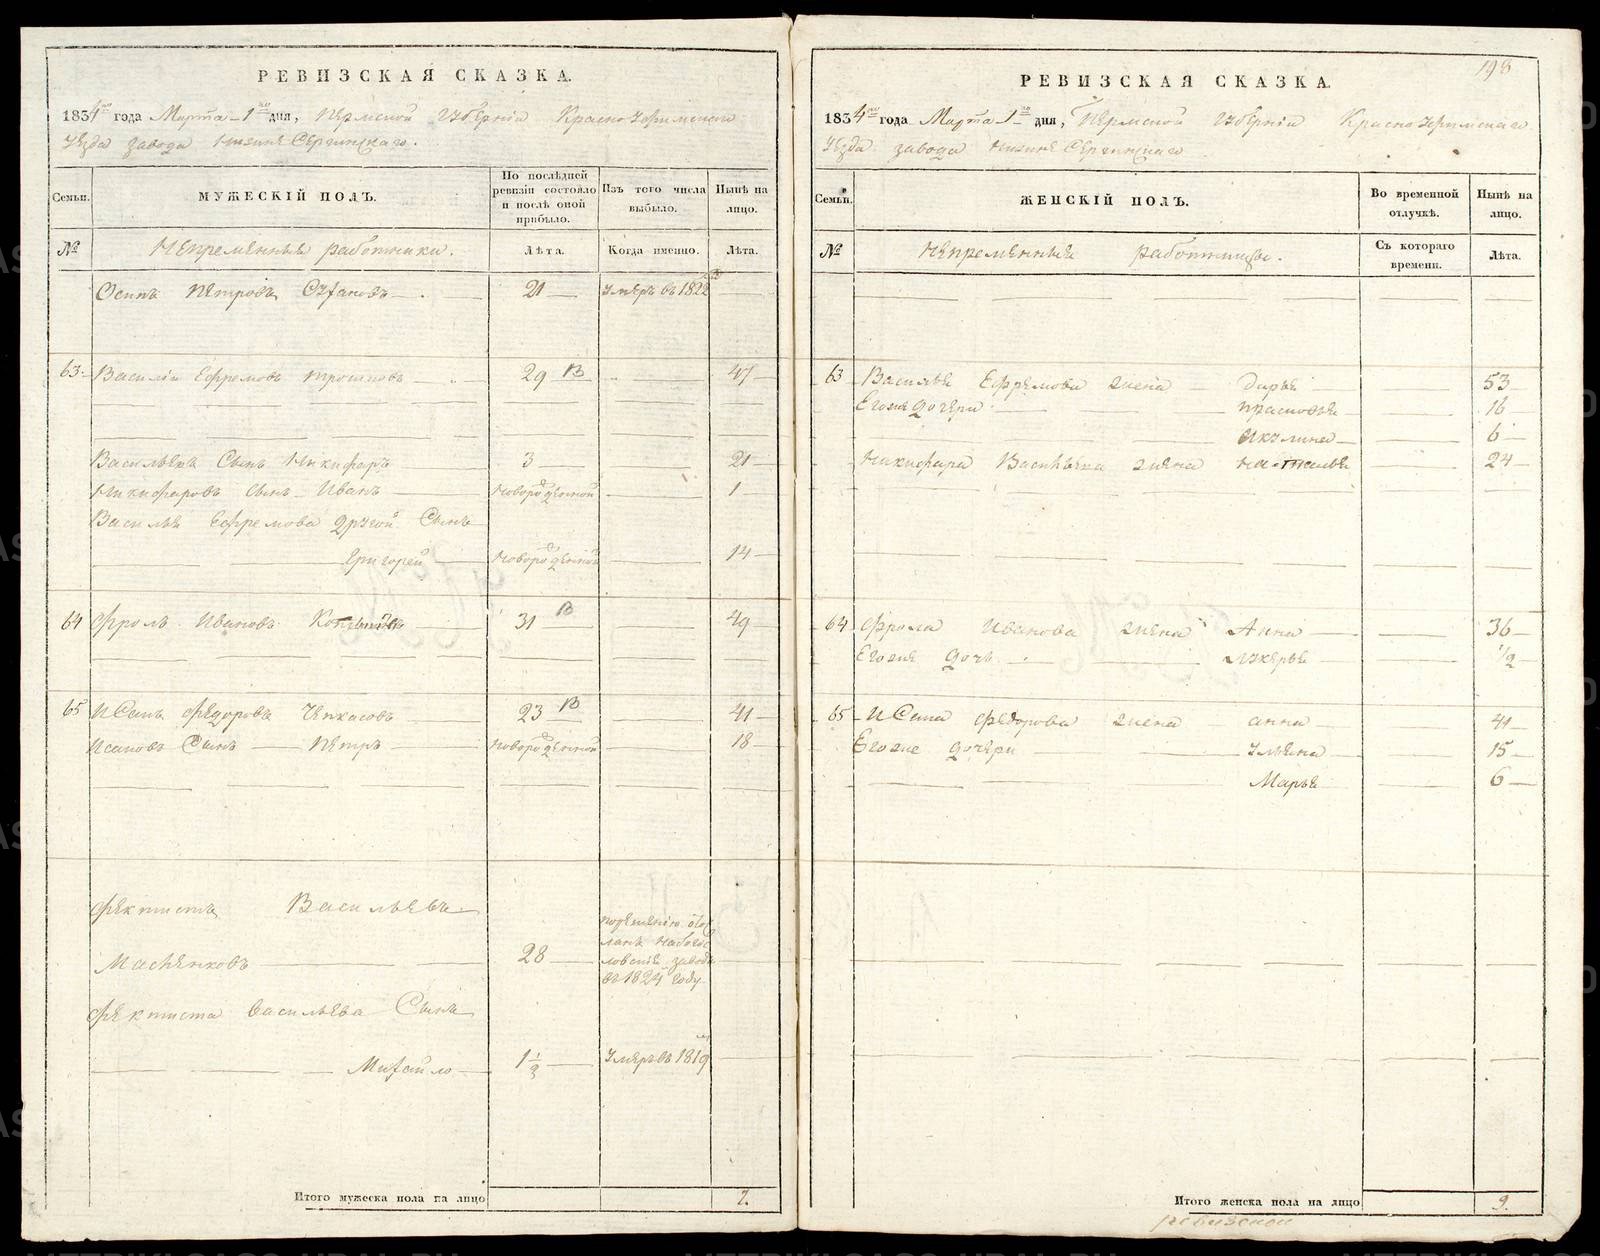 РЕВИЗСКАЯ СКАЗКА.
1834го года Марта 1го дня, Пермской Губерніи Красноуфимскаго
Уезда завода Нижне Сергинскаго.
Семьи.
МУЖЕСКІЙ ПОЛЪ.
По послѣдней ревизіи состояло и послѣ оной прибыло.
Изъ того числа выбыло.
Нынѣ на лицо.
№
Непременные работники.
Лѣта.
Когда именно.
Лѣта.
Осипъ Петровъ 21 умеръ въ 1822
63 Василій Ефремовъ 29 В 47
Васильевъ Сынъ Никифаръ 3 21
Никифаровъ сынъ Иванъ новорожденной 1
Василья Ефремова другой Сынъ
Григорей новорожденной 14
64 Фролъ Ивановъ 31 В 49
65 Исакъ Федоровъ Чепкасовъ 23 В 41
Исаковъ Сынъ Петръ новорожденной 18
Фектистъ Васильевъ
28
завод
въ 1824 году
Фектиста Васильева Сынъ
Михайло 1 1/2 умеръ въ 1819
Итого мужеска пола на лицо 7.
198
РЕВИЗСКАЯ СКАЗКА.
1834го года Марта 1го дня, Пермской Губерніи Красноуфимскаго
Уезда завода Нижне Сергинскаго
Семьи.
ЖЕНСКІЙ ПОЛЪ.
Во временной отлучкѣ.
Нынѣ на лицо.
№
Непременные работницы.
Съ котораго времени.
Лѣта.
63 Василья Ефремова жена Дарья 53
Егоже дочери Прасковья 16
Акулина 6
Никифара Васильева жена Наталья 24
64 Фрола Иванова жена Анна 36
Егоже дочь Лукерья 1/2
65 Исака Федорова жена анна 41
Егоже дочери Ульяна 15
Марья 6
Итого женска пола на лицо 9.
ревизской